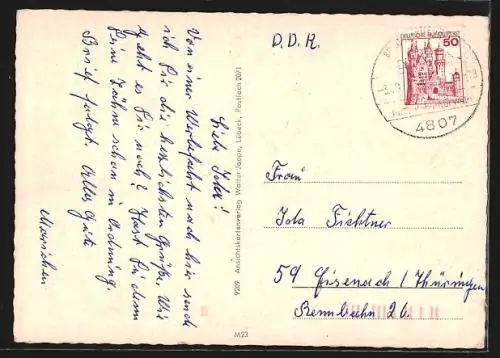 Liebe Ida!
Von einer Werbefahrt nach hier sende
ich Dir die herzlichsten Grüße. Wie
geht es Dir noch? Hast Du denn
Deine Zähne schon in Ordnung.
Brief folgt. Alles Gute
Mariechen
9209 Ansichtskartenverlag Walter Jappe, Lübeck, Postfach 2071
M23
D.D.R.
DEUTSCHE BUNDESPOST
50
4807
Frau
Ida Fichtner
59 Eisenach / Thüringen
Rennbahn 26.